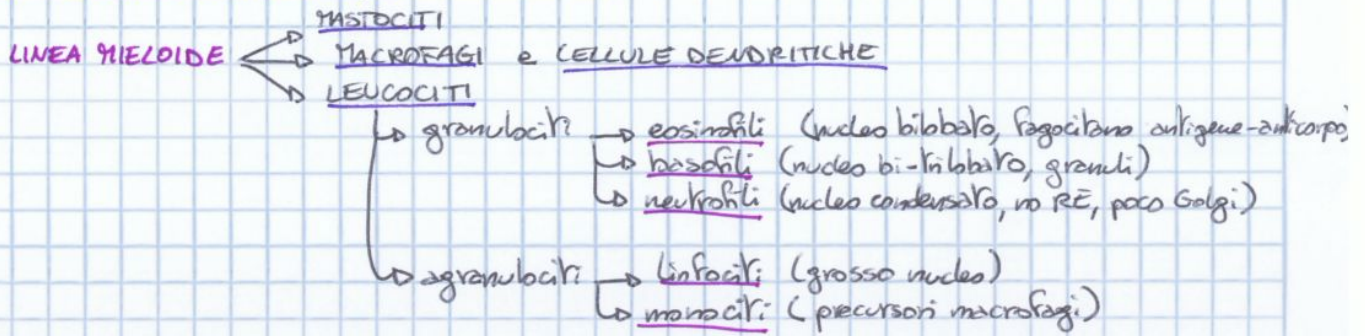 MASTOCITI
LINEA MIELOIDE → MACROFAGI e CELLULE DENDRITICHE
LEUCOCITI
granulociti → eosinofili (nucleo bilobato, fagocitano antigene-anticorpo)
basofili (nucleo bi-trilobato, granuli)
neutrofili (nucleo condensato, no RE, poco Golgi)
agranulociti → linfociti (grosso nucleo)
monociti (precursori macrofagi)